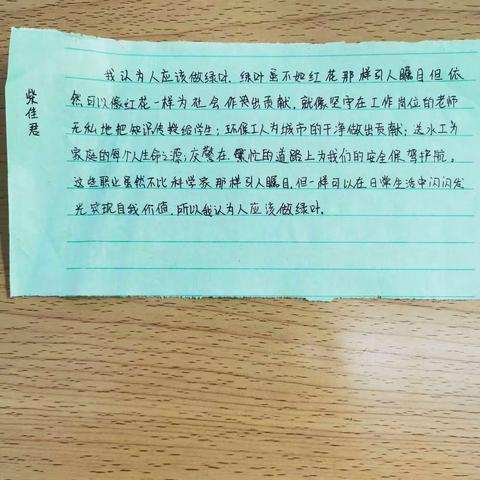 柴佳君
我认为人应该做绿叶.绿叶虽不如红花那样引人瞩目但依
然可以像红花一样为社会作突出贡献.就像坚守在工作岗位的老师
无私地把知识传授给学生;环保工人为城市的干净做出贡献;送水工为
家庭的每个人生命之源;交警在繁忙的道路上为我们的安全保驾护航。
这些职业虽然不比科学家那样引人瞩目,但一样可以在日常生活中闪闪发
光实现自我价值.所以我认为人应该做绿叶.